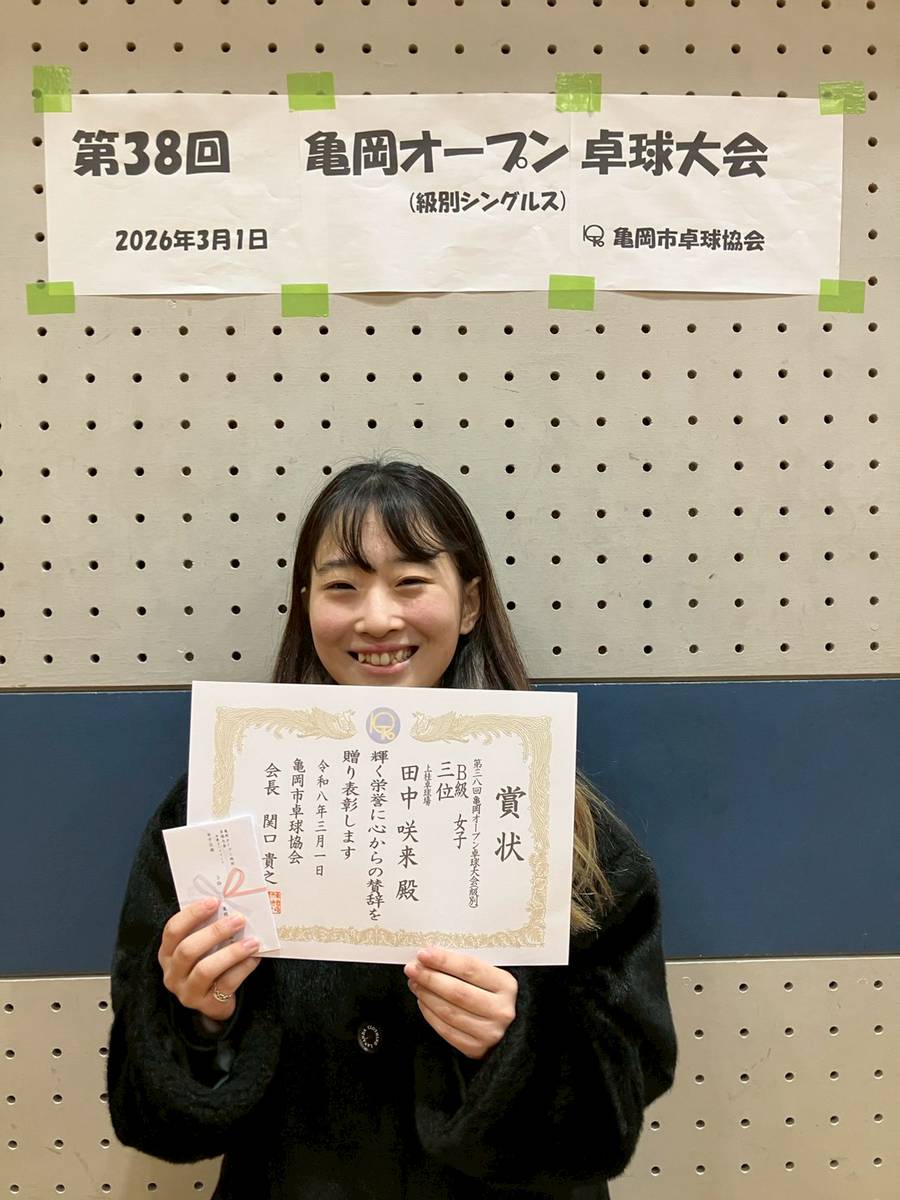 第38回 亀岡オープン 卓球大会
(級別シングルス)
2026年3月1日
亀岡市卓球協会
賞状
第三八回亀岡オープン卓球大会(級別)
B級 女子
三位
上桂卓球場
田中 咲来 殿
輝く栄誉に心からの賛辞を
贈り表彰します
令和八年三月一日
亀岡市卓球協会
会長 関口 貴之